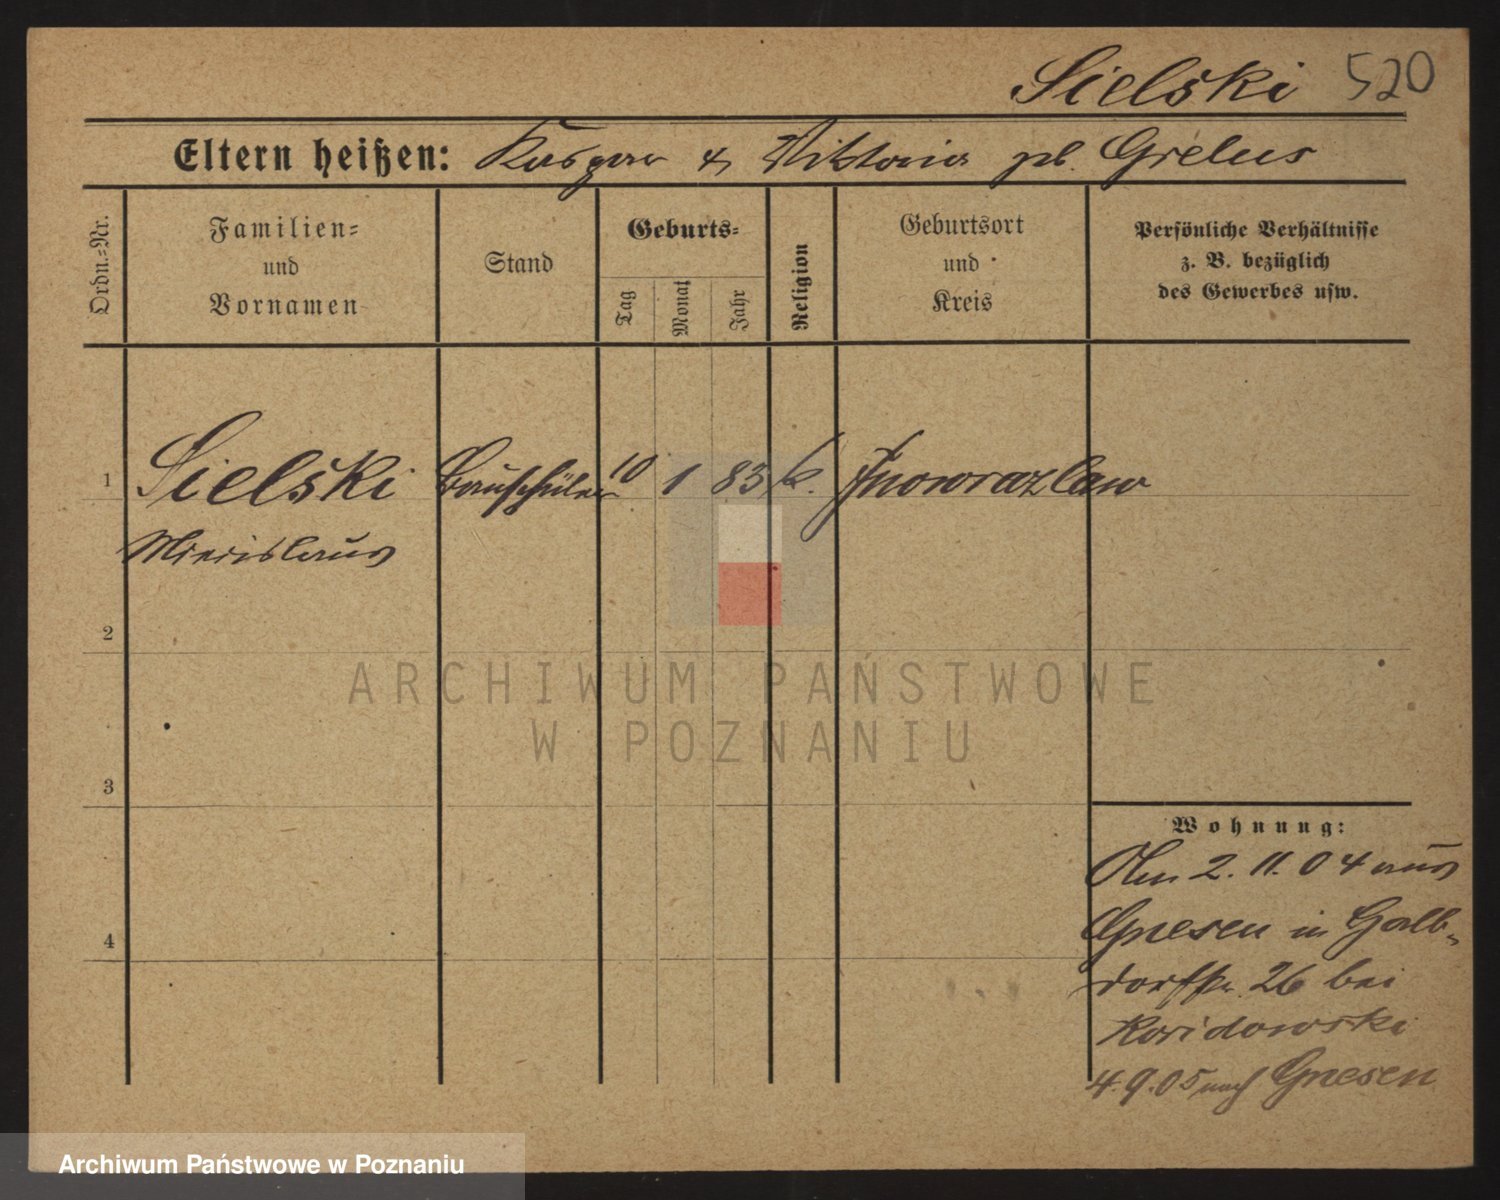 Sielski 520
Eltern heißen: Kaspar & Viktoria gb. Grelus
Ordn.-Nr.
Familien-
und
Vornamen
Stand
Geburts-
Tag
Monat
Jahr
Religion
Geburtsort
und
Kreis
Persönliche Verhältnisse
z. B. bezüglich
des Gewerbes usw.
1 Sielski Bauschüler 10 1 83 k. Inowrazlaw
2
3
4
Wohnung:
Am 2. 11. 04 aus
Gnesen in Halb-
dorfstr. 26 bei
4.9.05 nach Gnesen
ARCHIWUM PAŃSTWOWE
W POZNANIU
Archiwum Państwowe w Poznaniu